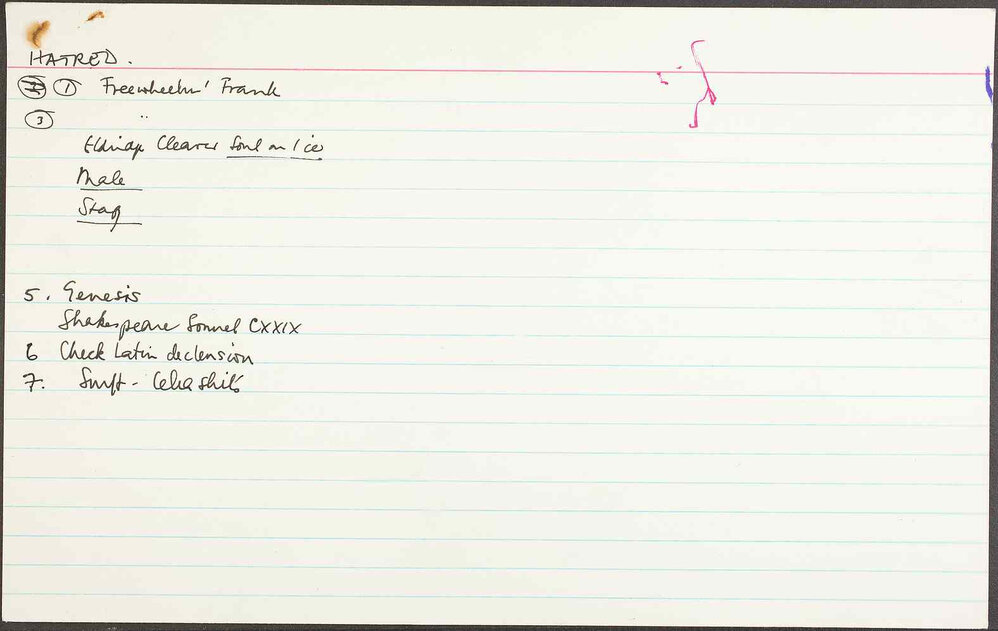 HATRED.
① Freewheelin' Frank
③ "
Eldridge Cleaver Soul on Ice
Male
Stag
5. Genesis
Shakespeare Sonnet CXXIX
6 Check Latin declension
7. Swift - Celia shits